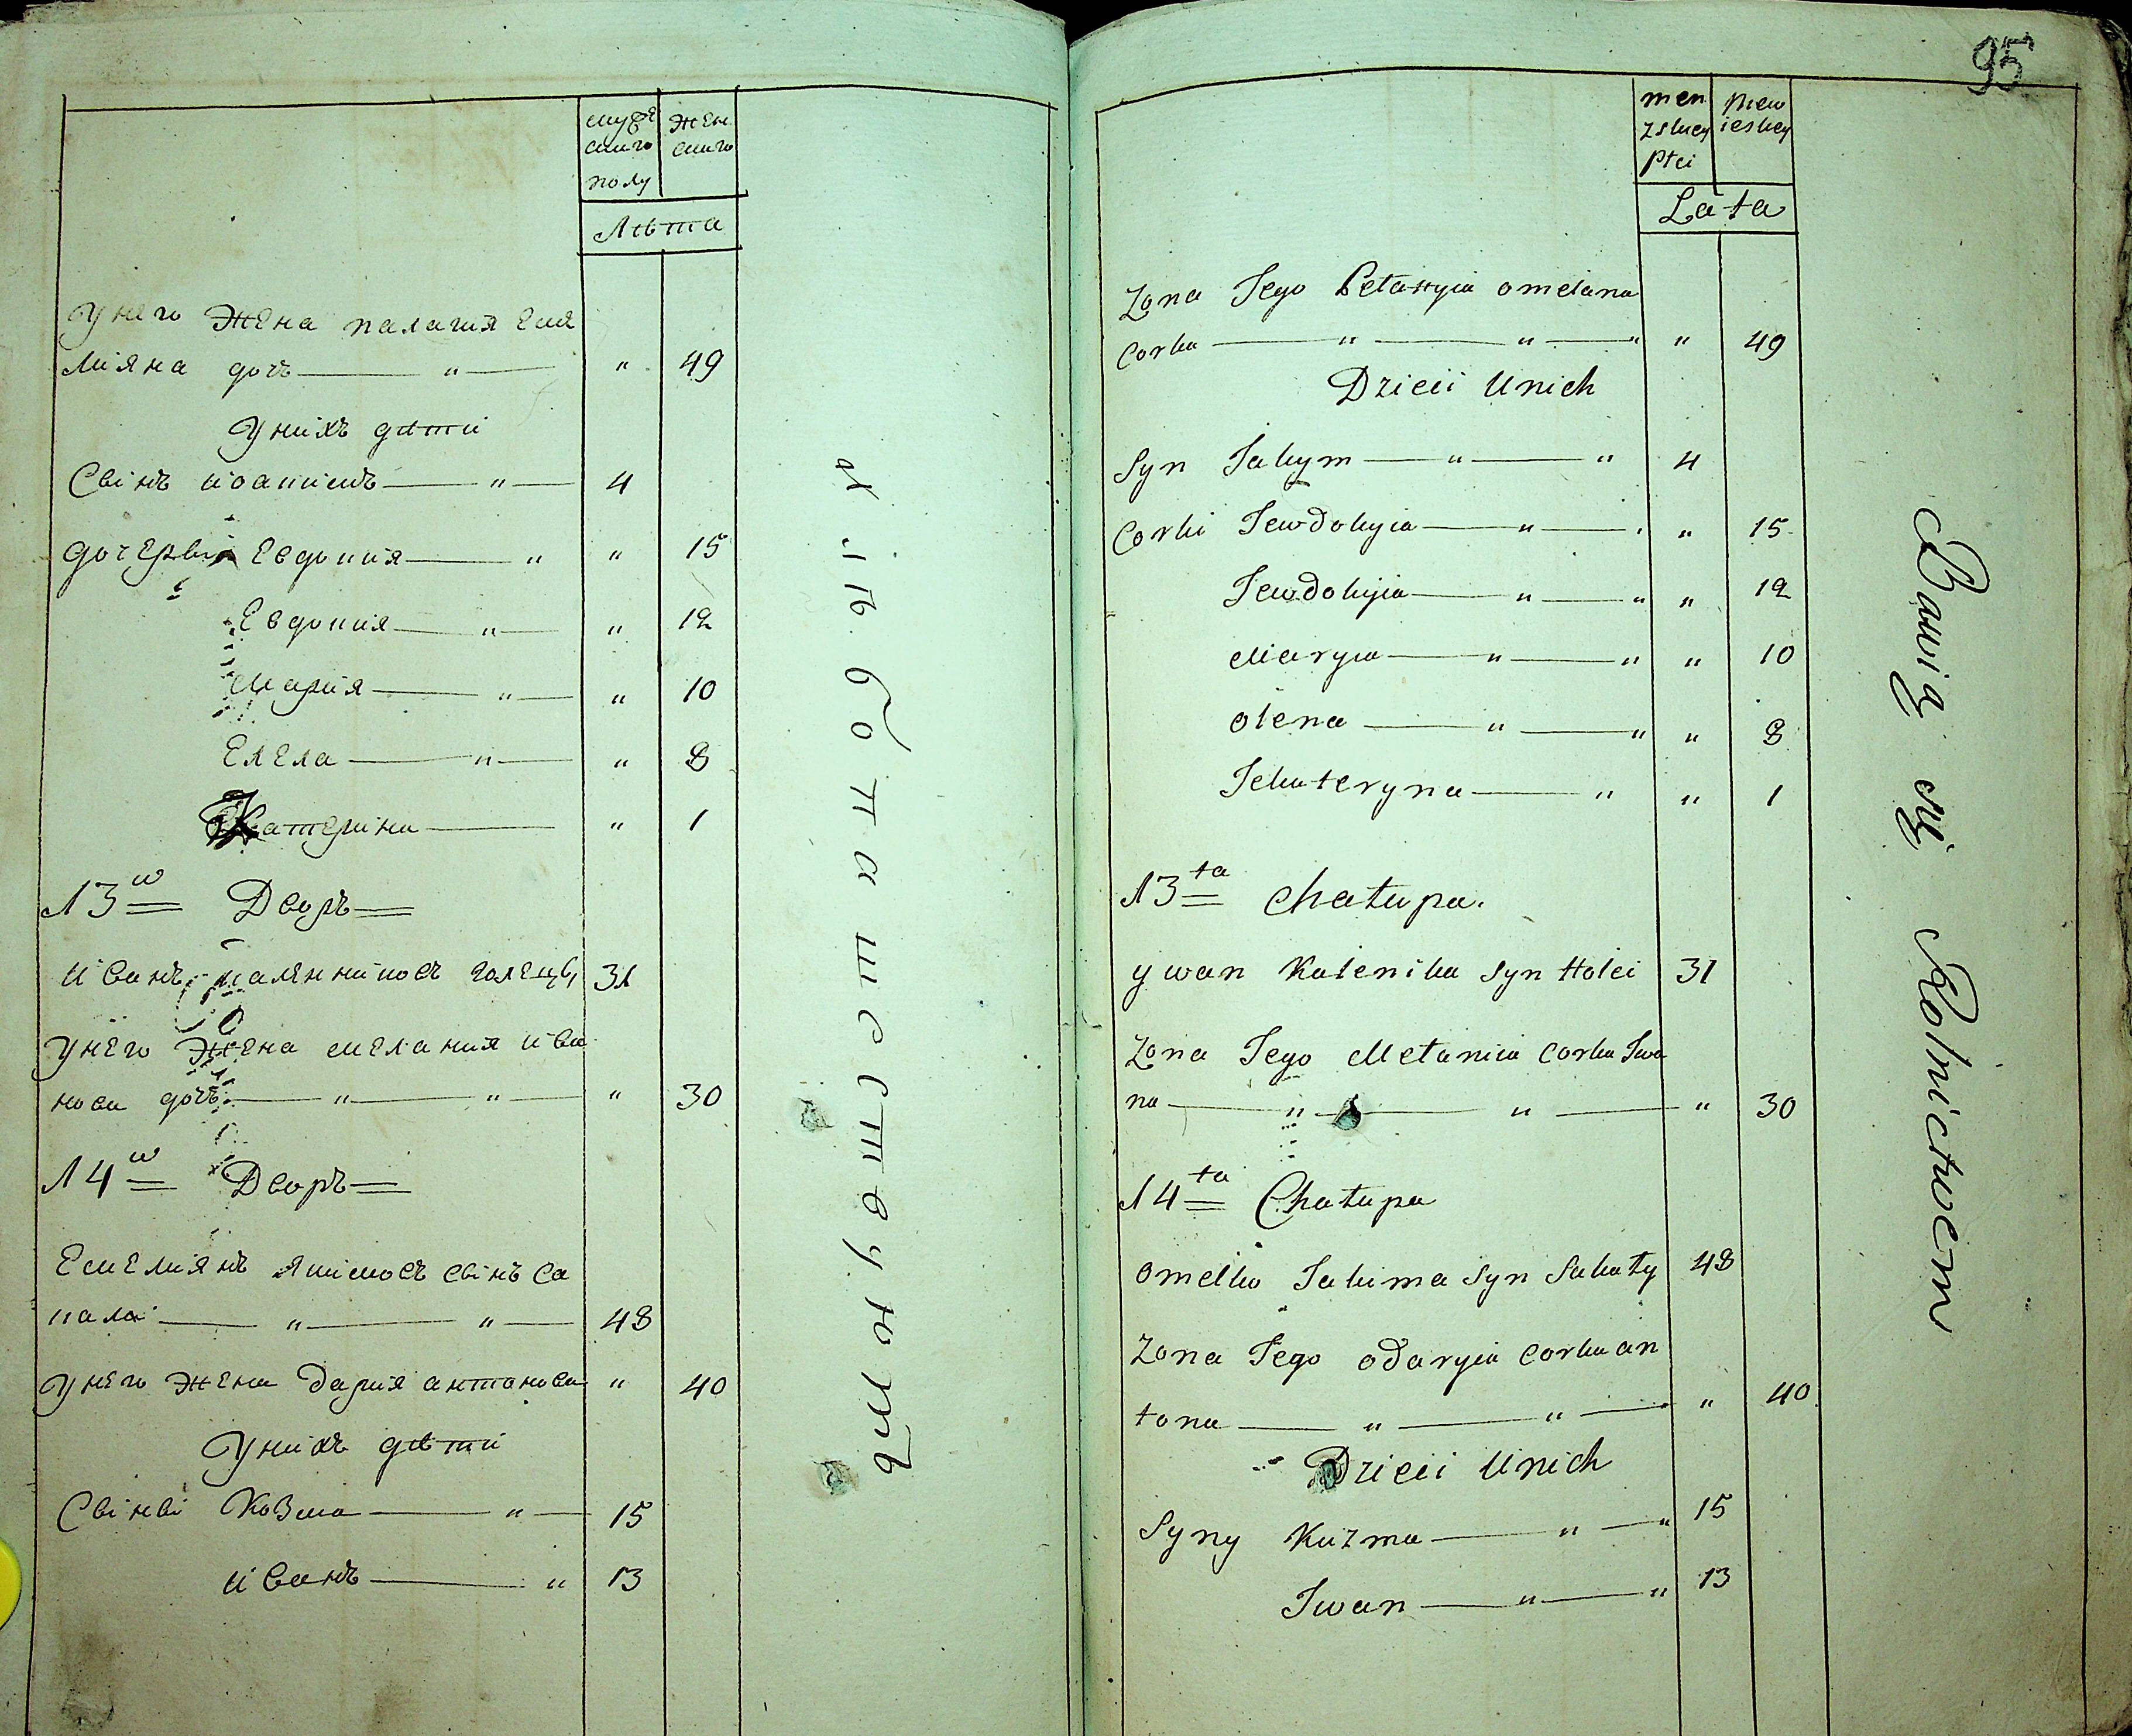 мужѣ
скаго
полу
жен
скаго
Лѣта
У него жена палагия Еме
лияна дочъ — " — " 49
У нихъ дѣти
Сынъ иоакимъ — " — 4
дочерьи Евдокия — " " 15
Евдокия — " — " 12
Мария — " — " 10
Елена — " — " 8
Катерина — " 1
13й Дворъ
Иванъ каленниковъ голецъ 31
У него жена мелания ива
нова дочъ — " — " — " 30
14й Дворъ
Емелиянъ якимовъ сынъ са
кала — " — " — 48
У него жена дария антонова " 40
У нихъ дѣти
Сыны Козма — " — 15
иванъ — " 13
хлѣбопашествуютъ
95
men
zskey
płci
niew
ieskey
Lata
Zona Jego Pelahyia omelana
Corka — " — " — " " 49
Dzieci Unich
Syn Jakym — " — " 4
Corki Jewdokyia — " — " 15
Jewdokyia — " — " " 12
Maryia — " — " " 10
olena — " — " " 8
Jekateryna — " " 1
13ta chałupa.
ywan Kalenika syn Holci 31
Zona Jego Melaniia Corka Iwa
na — " — " — " 30
14ta Chałupa
omelko Jakima syn Sakały 48
Zona Jego odaryia Corka an
tona — " — " — " 40
Dzieci Unich
Syny Kuzma — " — " 15
Iwan — " — " 13
Bawią się Rolnictwem